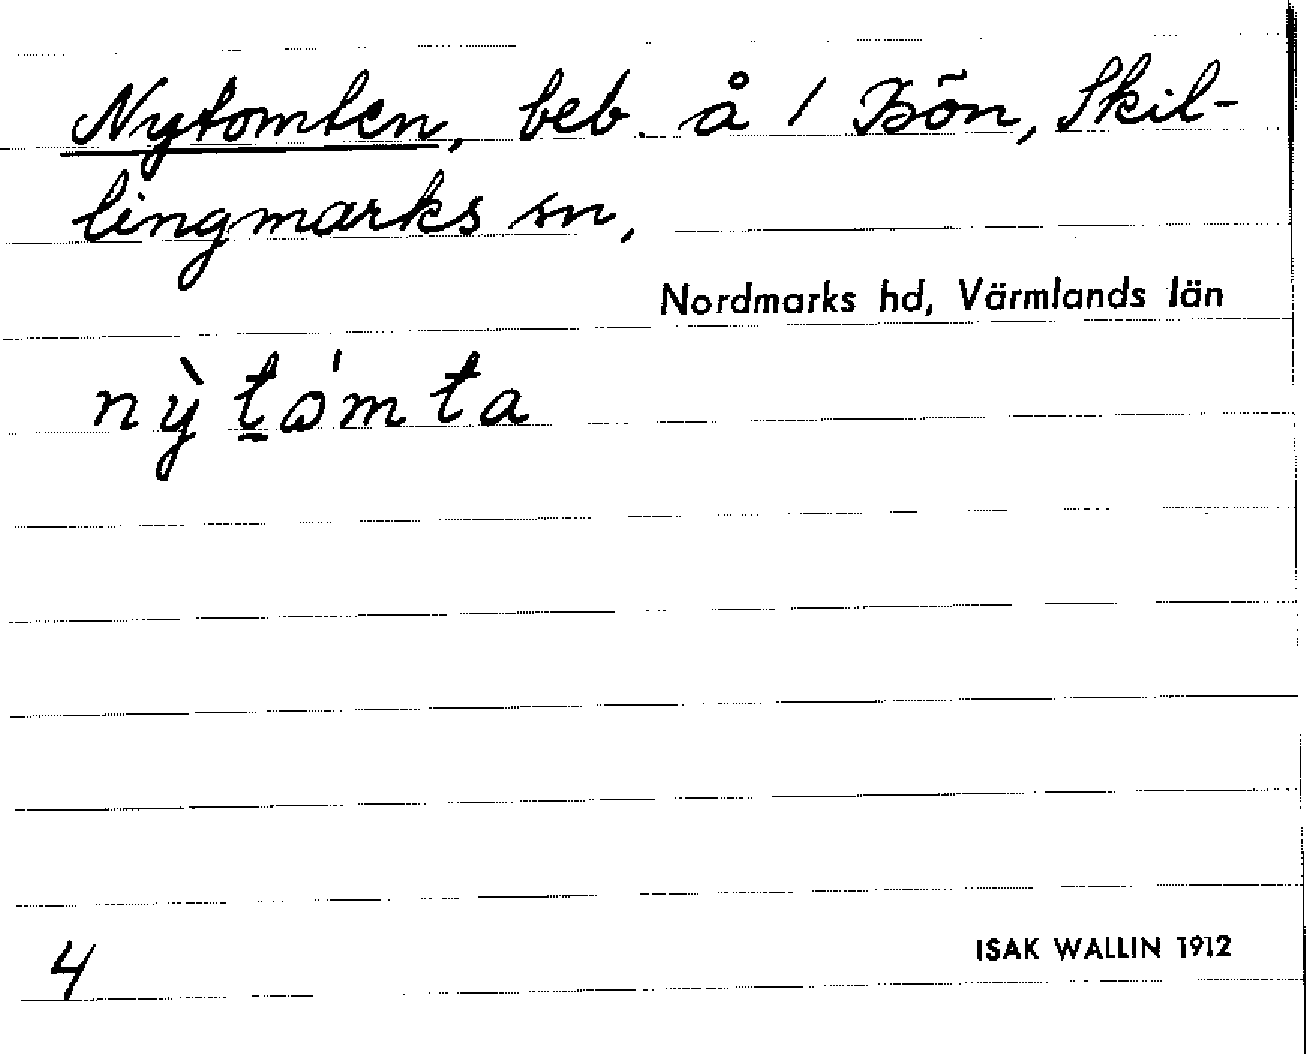 Nytomten, beb. å / Bön, Skil-
lingmarks sn,
Nordmarks hd, Värmlands län
nỳt̠ɷ́mta
4
ISAK WALLIN 1912